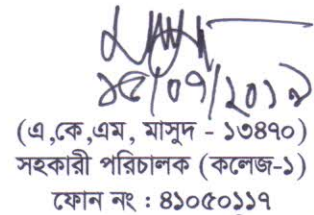 ১৫/০৭/২০১৯
(এ,কে,এম, মাসুদ - ১৩৪৭০)
সহকারী পরিচালক (কলেজ-১)
ফোন নং : ৪১০৫০১১৭